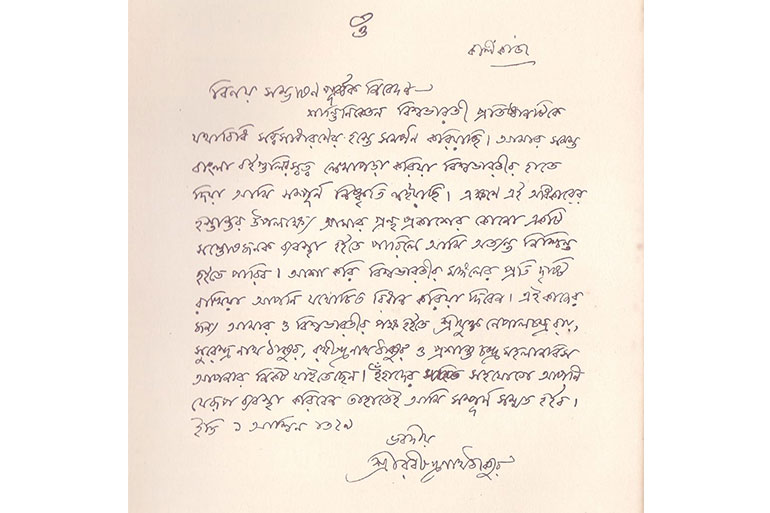 ওঁ
কলিকাতা
বিনয় সম্ভাষণ পূর্ব্বক নিবেদন—
শান্তিনিকেতন বিশ্বভারতী প্রতিষ্ঠানটিকে
যথাবিধি সর্ব্বসাধারণের হস্তে সমর্পন করিয়াছি। আমার সমস্ত
বাংলা বইগুলির স্বত্ব লেখাপড়া করিয়া বিশ্বভারতীর হাতে
দিয়া আমি সম্পূর্ণ নিষ্কৃতি লইয়াছি। এক্ষণে এই অধিকারের
হস্তান্তর উপলক্ষ্যে আমার গ্রন্থ প্রকাশের কোনো একটি
সন্তোষজনক ব্যবস্থা হইতে পারিলে আমি অত্যন্ত নিশ্চিন্ত
হইতে পারিব। আশা করি বিশ্বভারতীর মঙ্গলের প্রতি দৃষ্টি
রাখিয়া আপনি যথোচিত বিধান করিয়া দিবেন। এই কাজের
জন্য আমার ও বিশ্বভারতীর পক্ষ হইতে শ্রীযুক্ত নেপালচন্দ্র রায়,
সুরেন্দ্র নাথ ঠাকুর, রথীন্দ্রনাথ ঠাকুর ও প্রশান্ত চন্দ্র মহলানবিস
আপনার নিকট যাইতেছেন। ইঁহাদের সহযোগে আপনি
যেরূপ ব্যবস্থা করিবেন তাহাতেই আমি সম্পূর্ণ সম্মত হইব।
ইতি ১ আশ্বিন ১৩২৯
ভবদীয়
শ্রীরবীন্দ্রনাথ ঠাকুর